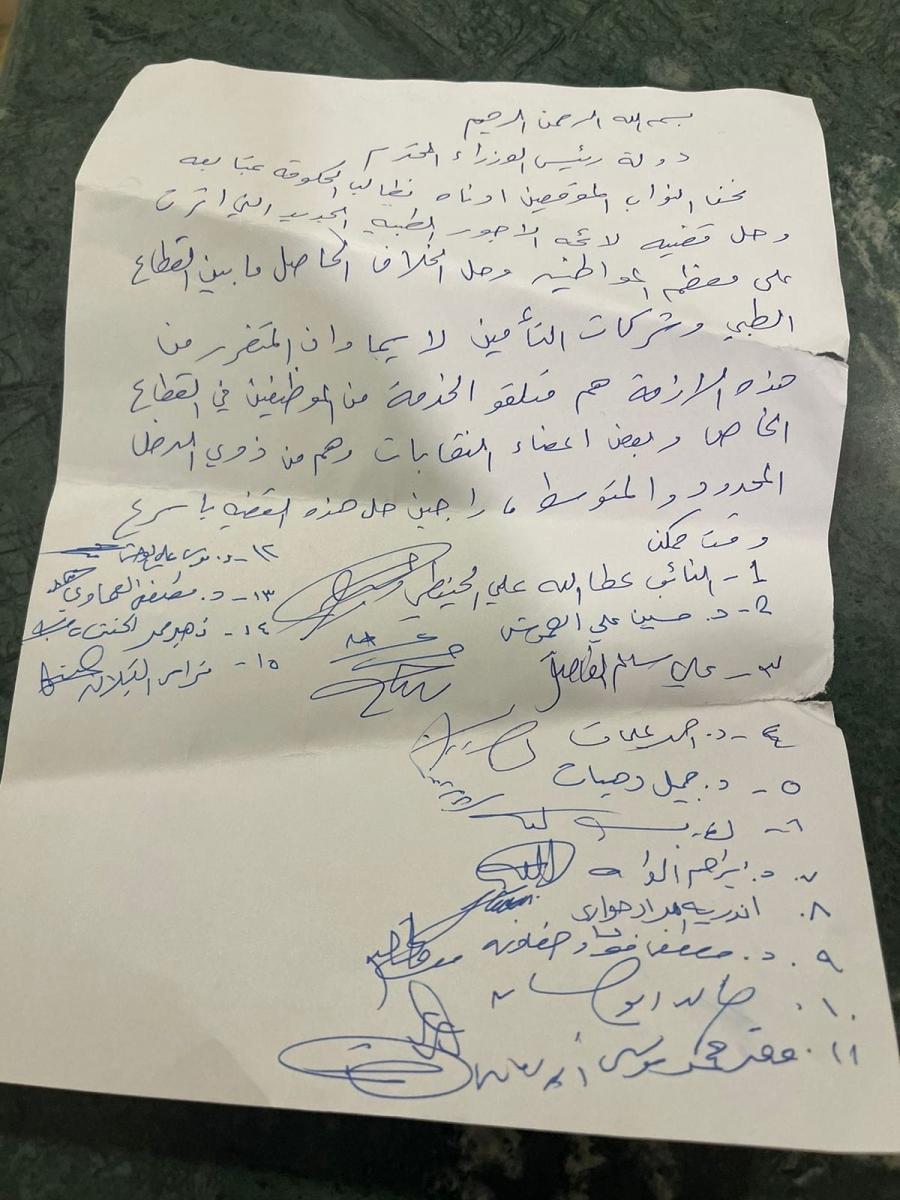 بسم الله الرحمن الرحيم
دولة رئيس الوزراء المحترم
نحن النواب الموقعين ادناه نطالب الحكومة بمتابعه
وحل قضيه لائحه الاجور الطبيه الجديده التي اثرت
على معظم المواطنين وحل الخلاف الحاصل ما بين القطاع
الطبي وشركات التأمين لا سيما وان المتضرر من
هذه الازمة هم متلقو الخدمة من الموظفين في القطاع
الخاص وبعض اعضاء النقابات وهم من ذوي الدخل
المحدود والمتوسط، راجين حل هذه القضيه باسرع
وقت ممكن
1- النائب عطا الله علي الحنيطي
2- د. حسين علي العموش
٣- علي سليم
٤- د. احمد عليمات
٥- د. جميل دهيسات
٦-
٧. د. ابراهيم
٨. اندريه مراد حواري
٩. د. مصطفى فؤاد خصاونه
١٠. خالد ابو
١١. محمد موسى
١٢- د.
١٣- د. مصطفى العماوي
١٤- زهير محمد
١٥- فراس القبلان